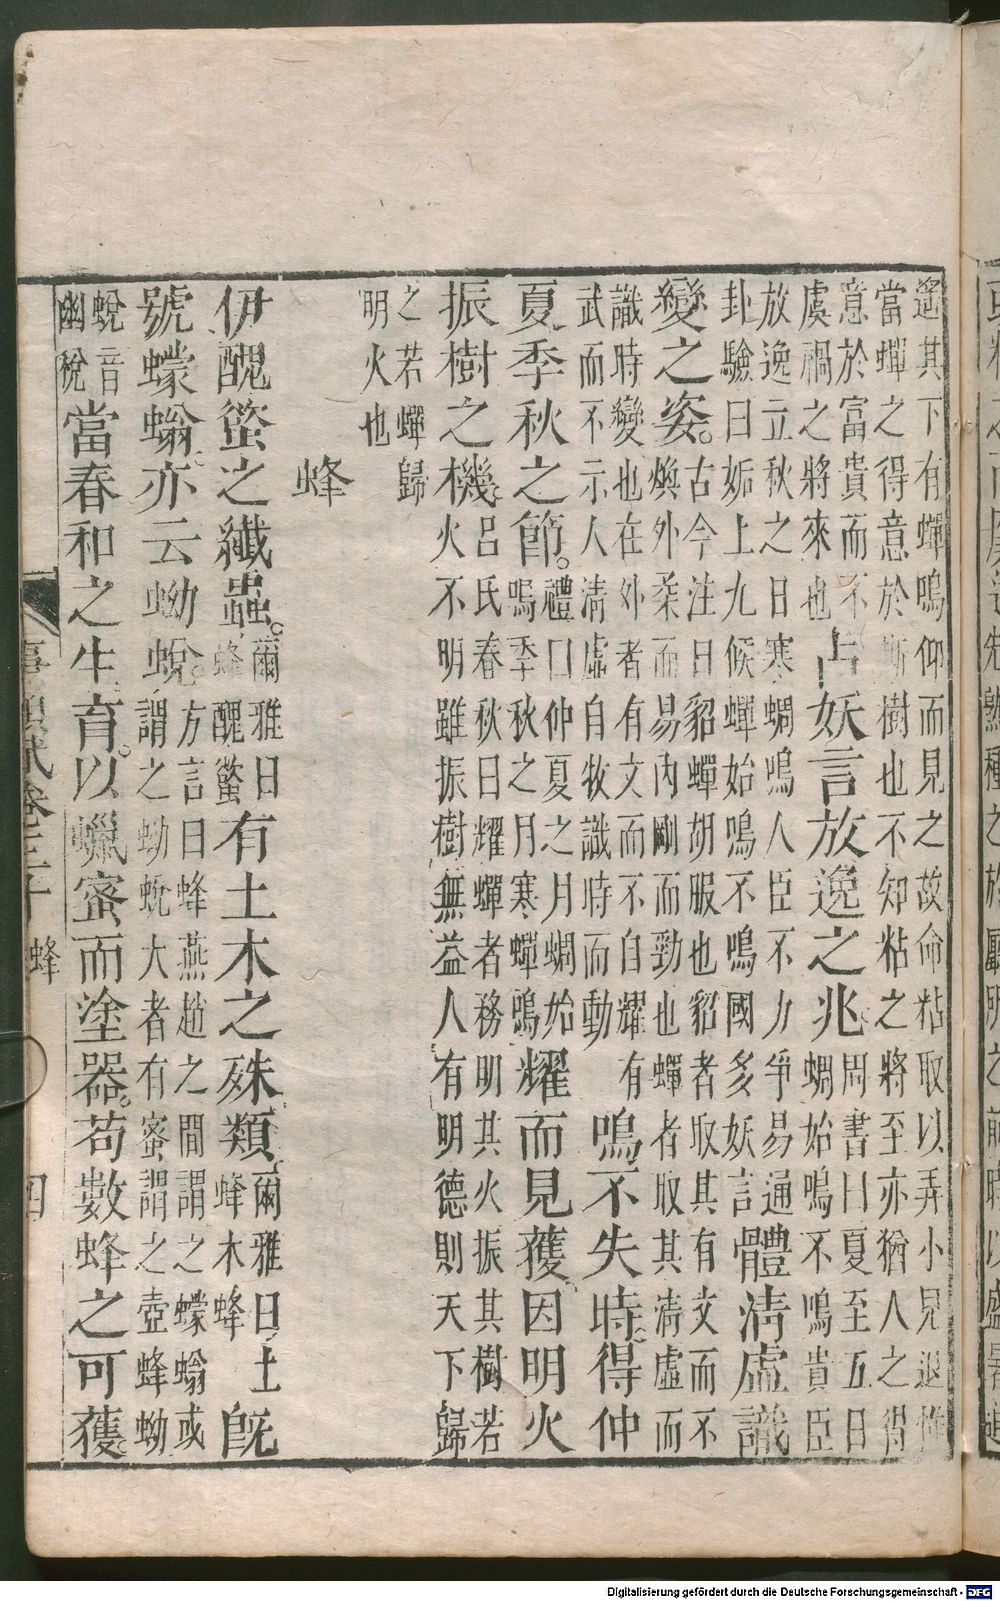 遙其下有蟬鳴仰而見之故命粘取以弄小兒退惟
當蟬之得意於斯樹也不知粘之將至亦猶人之得
意於富貴而不
虞禍之將來也
占妖言放逸之兆
周書曰夏至五日
蜩始鳴不鳴貴臣
放逸立秋之日寒蜩鳴人臣不力爭易通
卦驗曰姤上九候蟬始鳴不鳴國多妖言
體清虛識
變之姿。
古今注曰貂蟬胡服也貂者取其有文而不
煥外柔而易內剛而勁也蟬者取其清虛而
識時變也在外者有文而不自耀有
武而不示人清虛自牧識時而動
鳴不失時。得仲
夏季秋之節。
禮曰仲夏之月蜩始
鳴季秋之月寒蟬鳴
耀而見獲因明火
振樹之機。
呂氏春秋曰耀蟬者務明其火振其樹若
火不明雖振樹無益人有明德則天下歸
之若蟬歸
明火也
蜂
伊醜螸之纖蟲。
爾雅曰
蜂醜螸
有土木之殊類
爾雅曰土
蜂木蜂
既
號蠓螉。亦云蚴蛻。
方言曰蜂燕趙之間謂之蠓螉或
謂之蚴蛻大者有蜜謂之壺蜂蚴
蛻音
幽稅
當春和之生育。以蠟蜜而塗器。苟數蜂之可獲。
事類賦卷三十 蜂 四
Digitalisierung gefördert durch die Deutsche Forschungsgemeinschaft - DFG